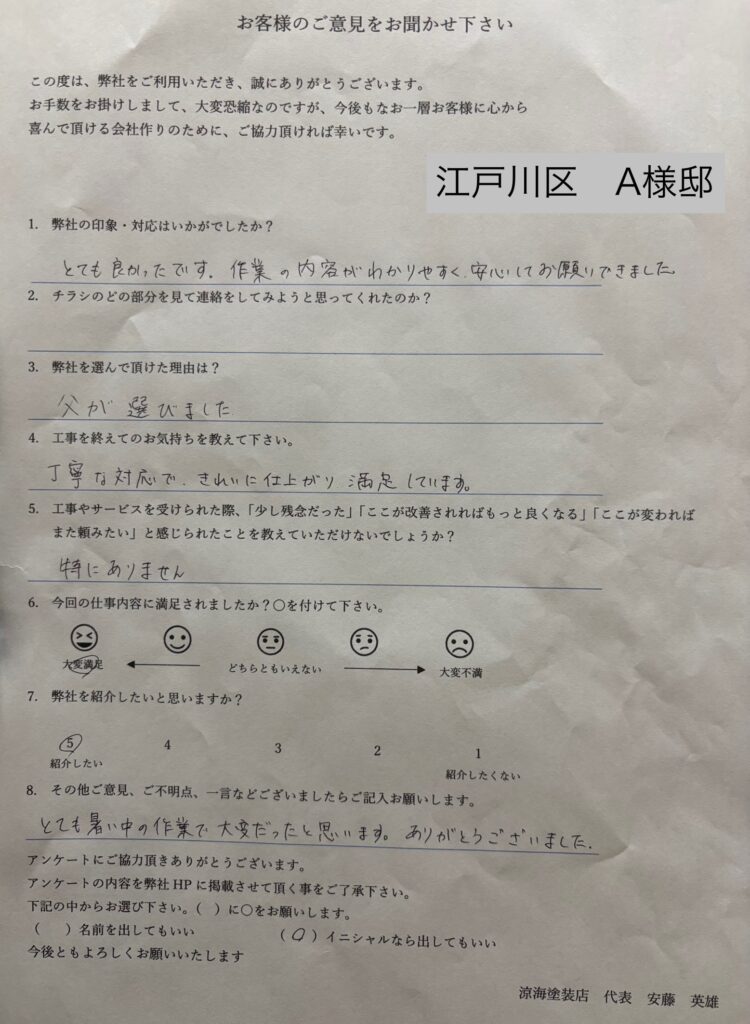 お客様のご意見をお聞かせ下さい
この度は、弊社をご利用いただき、誠にありがとうございます。
お手数をお掛けしまして、大変恐縮なのですが、今後もなお一層お客様に心から
喜んで頂ける会社作りのために、ご協力頂ければ幸いです。
江戸川区　A様邸
1. 弊社の印象・対応はいかがでしたか？
とても良かったです。作業の内容がわかりやすく、安心してお願いできました。
2. チラシのどの部分を見て連絡をしてみようと思ってくれたのか？
3. 弊社を選んで頂けた理由は？
父が選びました
4. 工事を終えてのお気持ちを教えて下さい。
丁寧な対応で、きれいに仕上がり満足しています。
5. 工事やサービスを受けられた際、「少し残念だった」「ここが改善されればもっと良くなる」「ここが変われば
また頼みたい」と感じられたことを教えていただけないでしょうか？
特にありません
6. 今回の仕事内容に満足されましたか？〇を付けて下さい。
大変満足　どちらともいえない　大変不満
7. 弊社を紹介したいと思いますか？
5　4　3　2　1
紹介したい　紹介したくない
8. その他ご意見、ご不明点、一言などございましたらご記入お願いします。
とても暑い中の作業で大変だったと思います。ありがとうございました。
アンケートにご協力頂きありがとうございます。
アンケートの内容を弊社 HP に掲載させて頂く事をご了承下さい。
下記の中からお選び下さい。(　) に〇をお願いします。
(　) 名前を出してもいい　(〇) イニシャルなら出してもいい
今後ともよろしくお願いいたします
涼海塗装店　代表　安藤　英雄